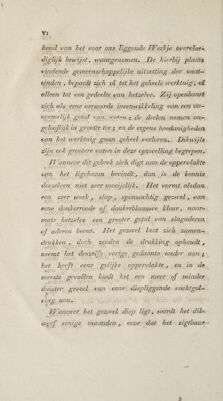 VI
hend van het voor ons liggende Werkje overvloe-
diglijk bewijst, waargenomen. De hierbij plaats
vindende gemeenschappelijke uitzetting der vaat-
einden, bepaalt zich of tot het geheele werktuig, of
alleen tot een gedeelte van hetzelve. Zij openbaart
zich als eene verwarde ineenwikkeling van een ver-
meerderlijk getal van vaten: de deelen nemen on-
gelooflijk in grootte toe; en de eigene hoedanigheden
van het werktuig gaan geheel verloren. Dikwijls
zijn ook grootere vaten in deze opzwelling begrepen.
Wanneer dit gebrek zich digt aan de oppervlakte
van het ligchaam bevindt, dan is de kennis
deszelven niet zeer moeijelijk. Het vormt alsdan
een zeer week, slap, sponsachtig gezwel, van
eene donkerroode of donkerblaauwe kleur, naar-
mate hetzelve een grooter getal van slagaderen
of aderen bevat. Het gezwel laat zich zamen-
drukken, doch zoodra de drukking ophoudt,
neemt het deszelfs vorige gedaante weder aan;
het heeft eene gelijke oppervlakte, en in de
meeste gevallen biedt het een meer of minder
duister gevoel van eene diepliggende vochtgol-
ving aan.
Wanneer het gezwel diep ligt, wordt het dik-
werf eenige maanden, voor dat het zigtbaar